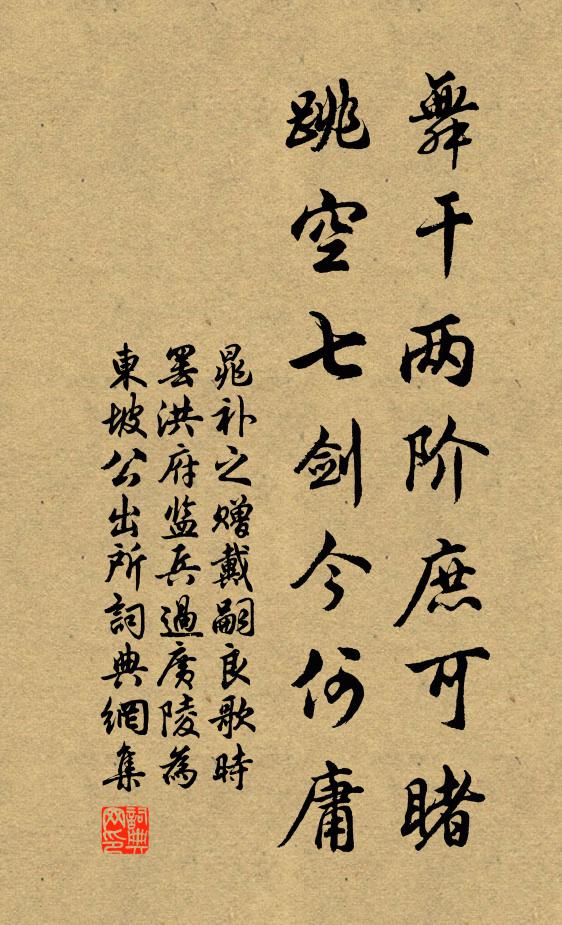 舞干两阶庶可睹
跳空七剑今何庸
晁补之赠戴嗣良歌時
罢洪府监兵過廣陵為
東坡公出所詞典網集
詞典网印